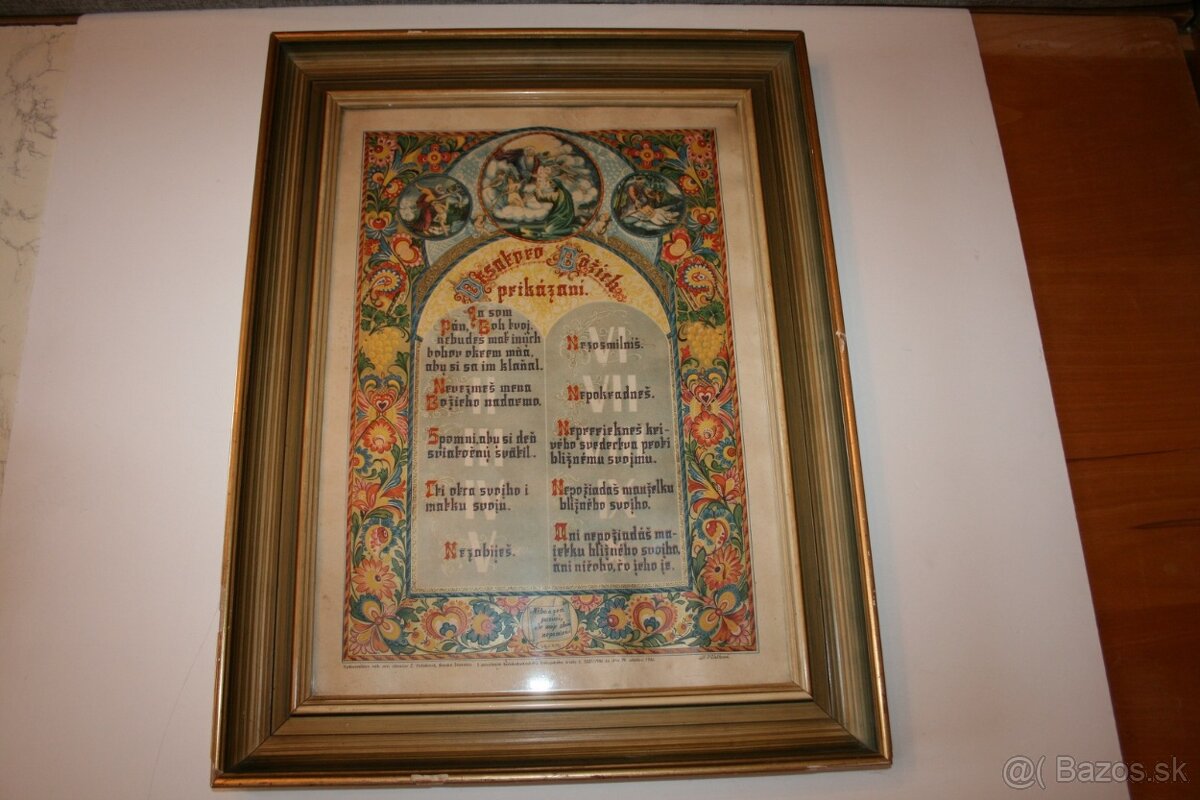 Desatoro Božích
prikázaní.
Ja som
Pán, Boh tvoj,
nebudeš mať iných
bohov okrem mňa,
aby si sa im klaňal.
Nevezmeš mena
Božieho nadarmo.
Spomni, aby si deň
sviatočný svätil.
Cti otca svojho i
matku svoju.
Nezabiješ.
VI
Nezosmilníš.
VII
Nepokradneš.
Nepreriekneš kri-
vého svedectva proti
bližnému svojmu.
Nepožiadáš manželku
bližného svojho.
Ani nepožiadáš ma-
jetku bližného svojho,
ani ničoho, čo jeho je.
II
III
IV
V
@( Bazos.sk